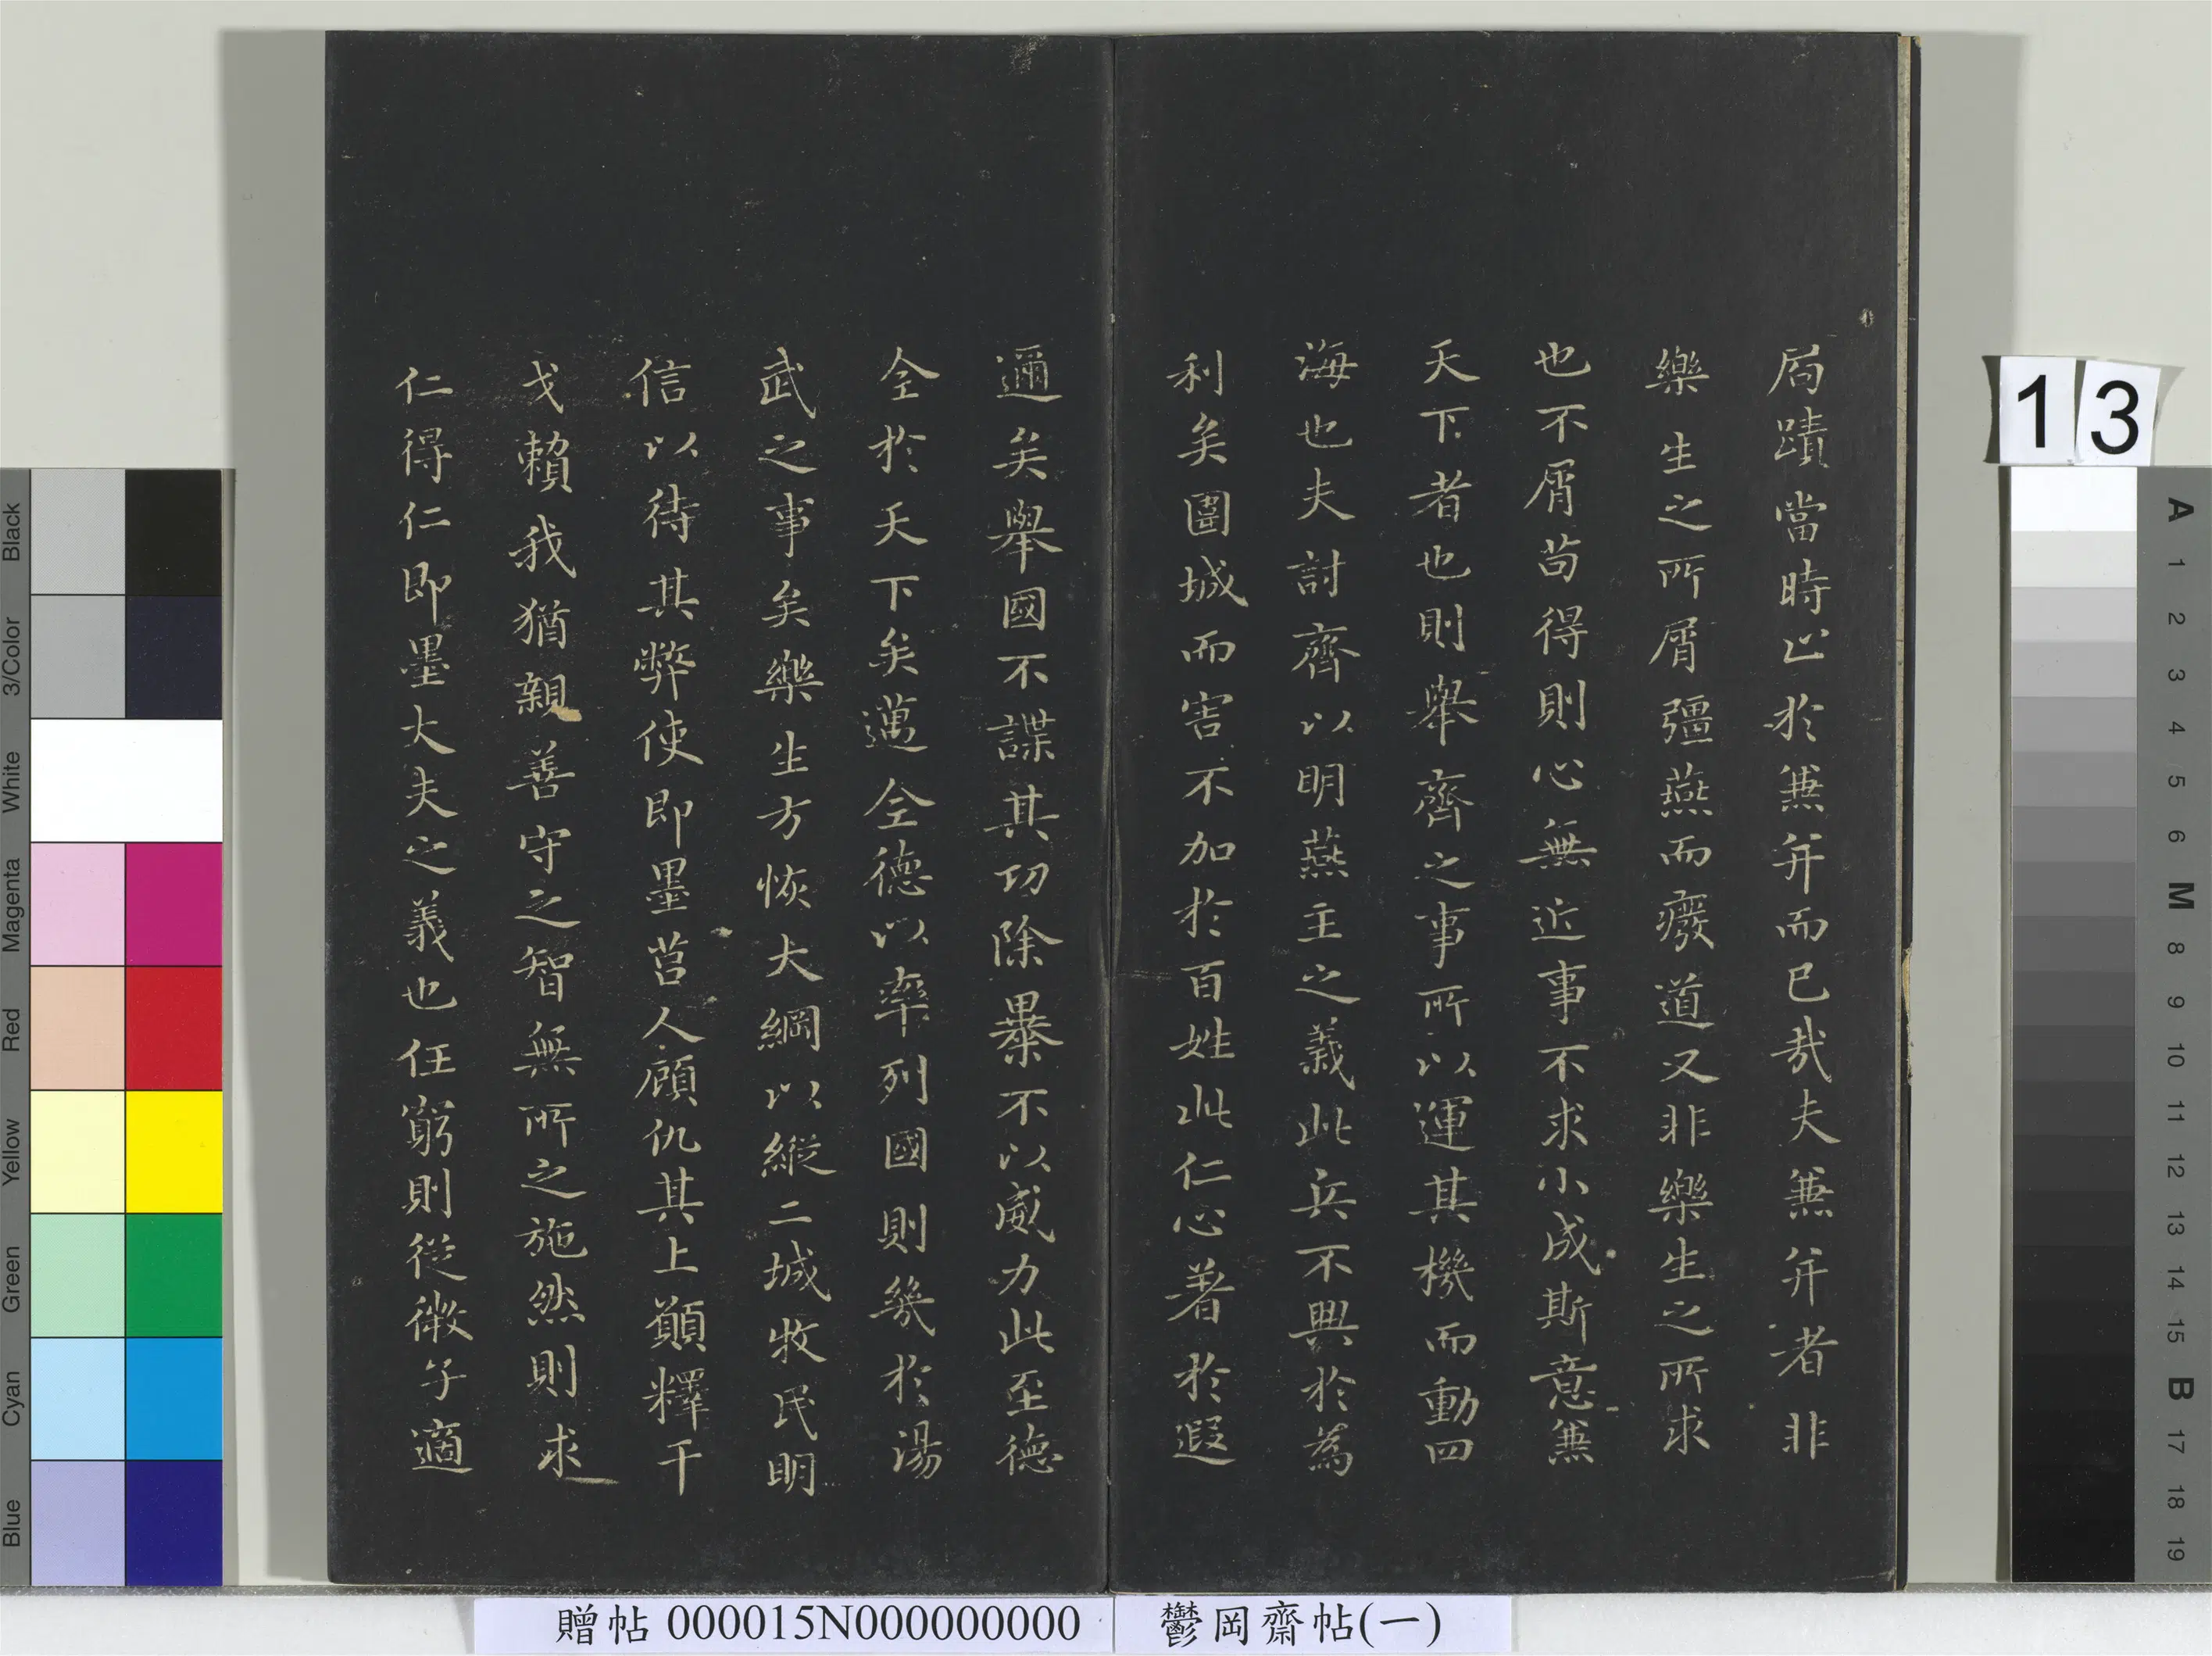 局蹟當時止於兼并而已哉夫兼并者非
樂生之所屑彊燕而癈道又非樂生之所求
也不屑苟得則心無近事不求小成斯意兼
天下者也則舉齊之事所以運其機而動四
海也夫討齊以明燕主之義此兵不興於為
利矣圍城而害不加於百姓此仁心著於遐
邇矣舉國不謀其功除暴不以威力此至德
全於天下矣邁全德以率列國則幾於湯
武之事矣樂生方恢大綱以縱二城牧民明
信以待其弊使即墨莒人顧仇其上願釋干
戈賴我猶親善守之智無所之施然則求
仁得仁即墨大夫之義也任窮則從微子適
贈帖 000015N000000000
鬱岡齋帖(一)
13
Black
3/Color
White
Magenta
Red
Yellow
Green
Cyan
Blue
A
1
2
3
4
5
6
M
8
9
10
11
12
13
14
15
B
17
18
19